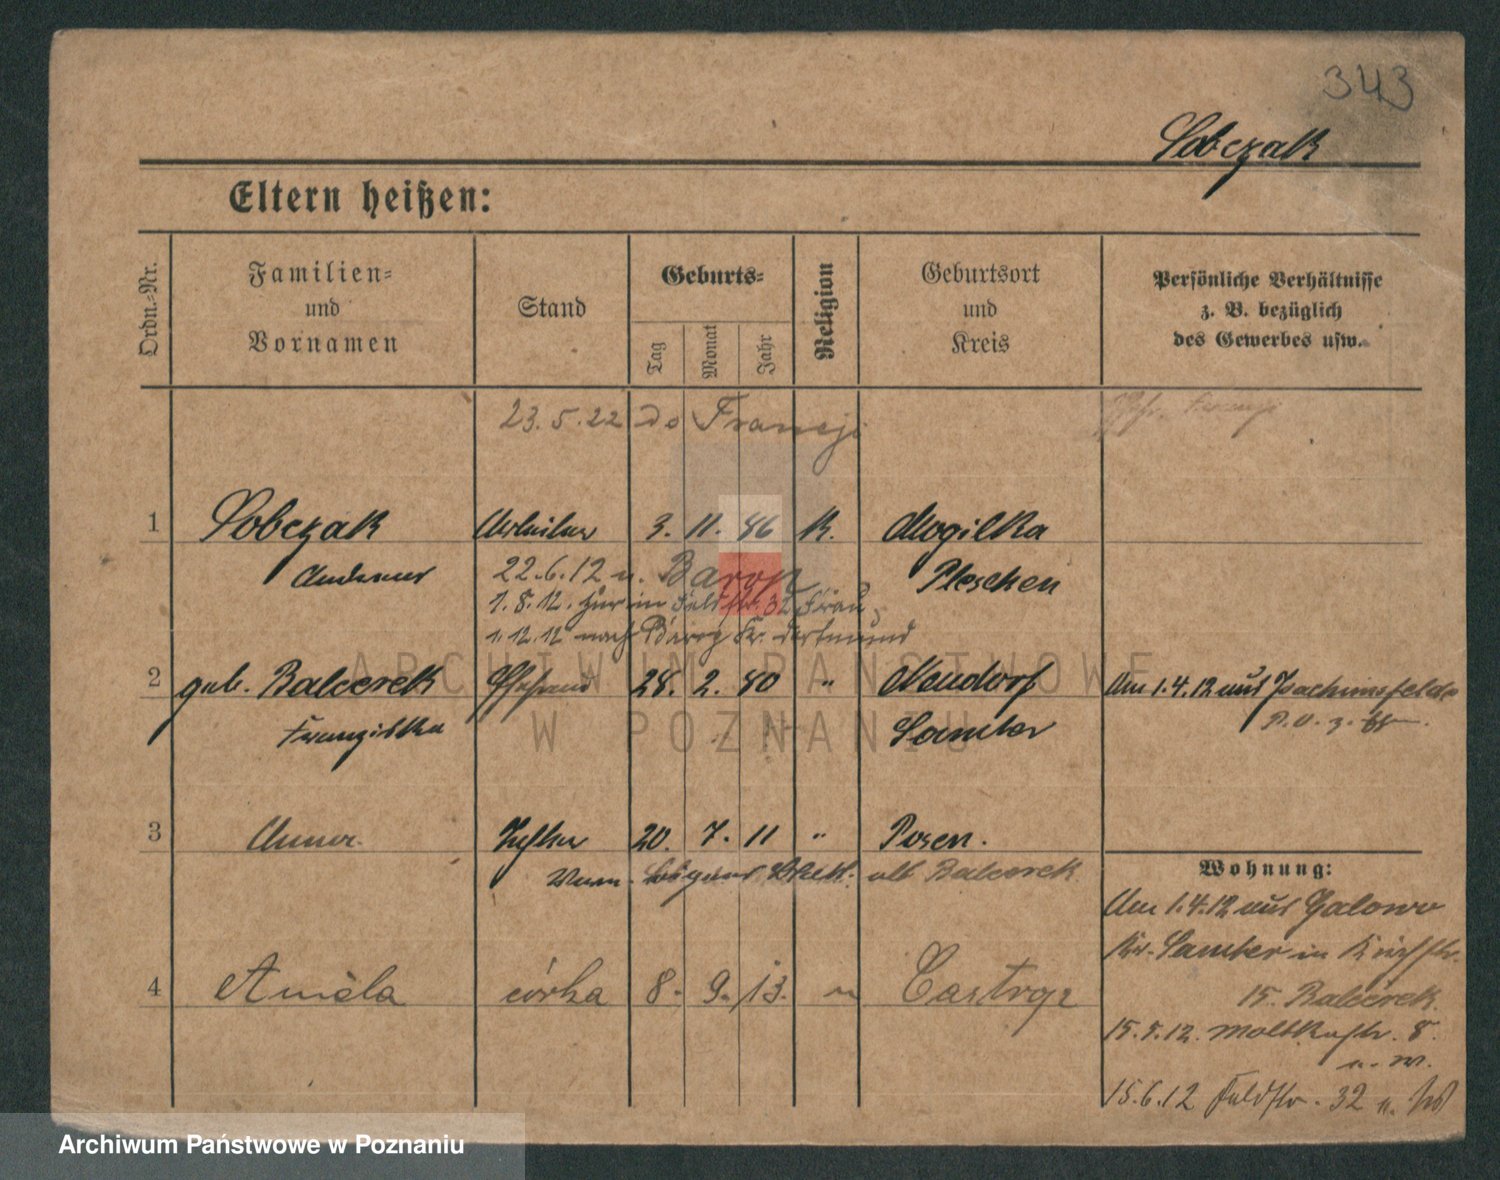 343
Sobczak
Eltern heißen:
Ordn.-Nr.
Familien-
und
Vornamen
Stand
Geburts-
Tag
Monat
Jahr
Religion
Geburtsort
und
Kreis
Persönliche Verhältnisse
z. B. bezüglich
des Gewerbes usw.
23.5.22 do Francji
1 Sobczak Arbeiter 3. 11. 86 K. Mogilka
Andreas Pleschen
22.6.12 n. Barop
1.8.12. zur in Feldstr. 32 Frau
1.12.12 nach Barop Kr. Dortmund
2 geb. Balcerek Ehefrau 28. 2. 80 " Neudorf Am 1.4.12 aus Joachimsfelde
Franziska Samter
3 Anna Tochter 20. 7. 11 " Posen.
als Balcerek
4 Aniela córka 8. 9. 13. " Castrop
Wohnung:
Am 1.4.12 aus Galowo
Kr. Samter in Kirchstr.
15. Balcerek
15.5.12. Moltkestr. 8.
15.6.12 Feldstr. 32
ARCHIWUM PAŃSTWOWE
W POZNANIU
Archiwum Państwowe w Poznaniu